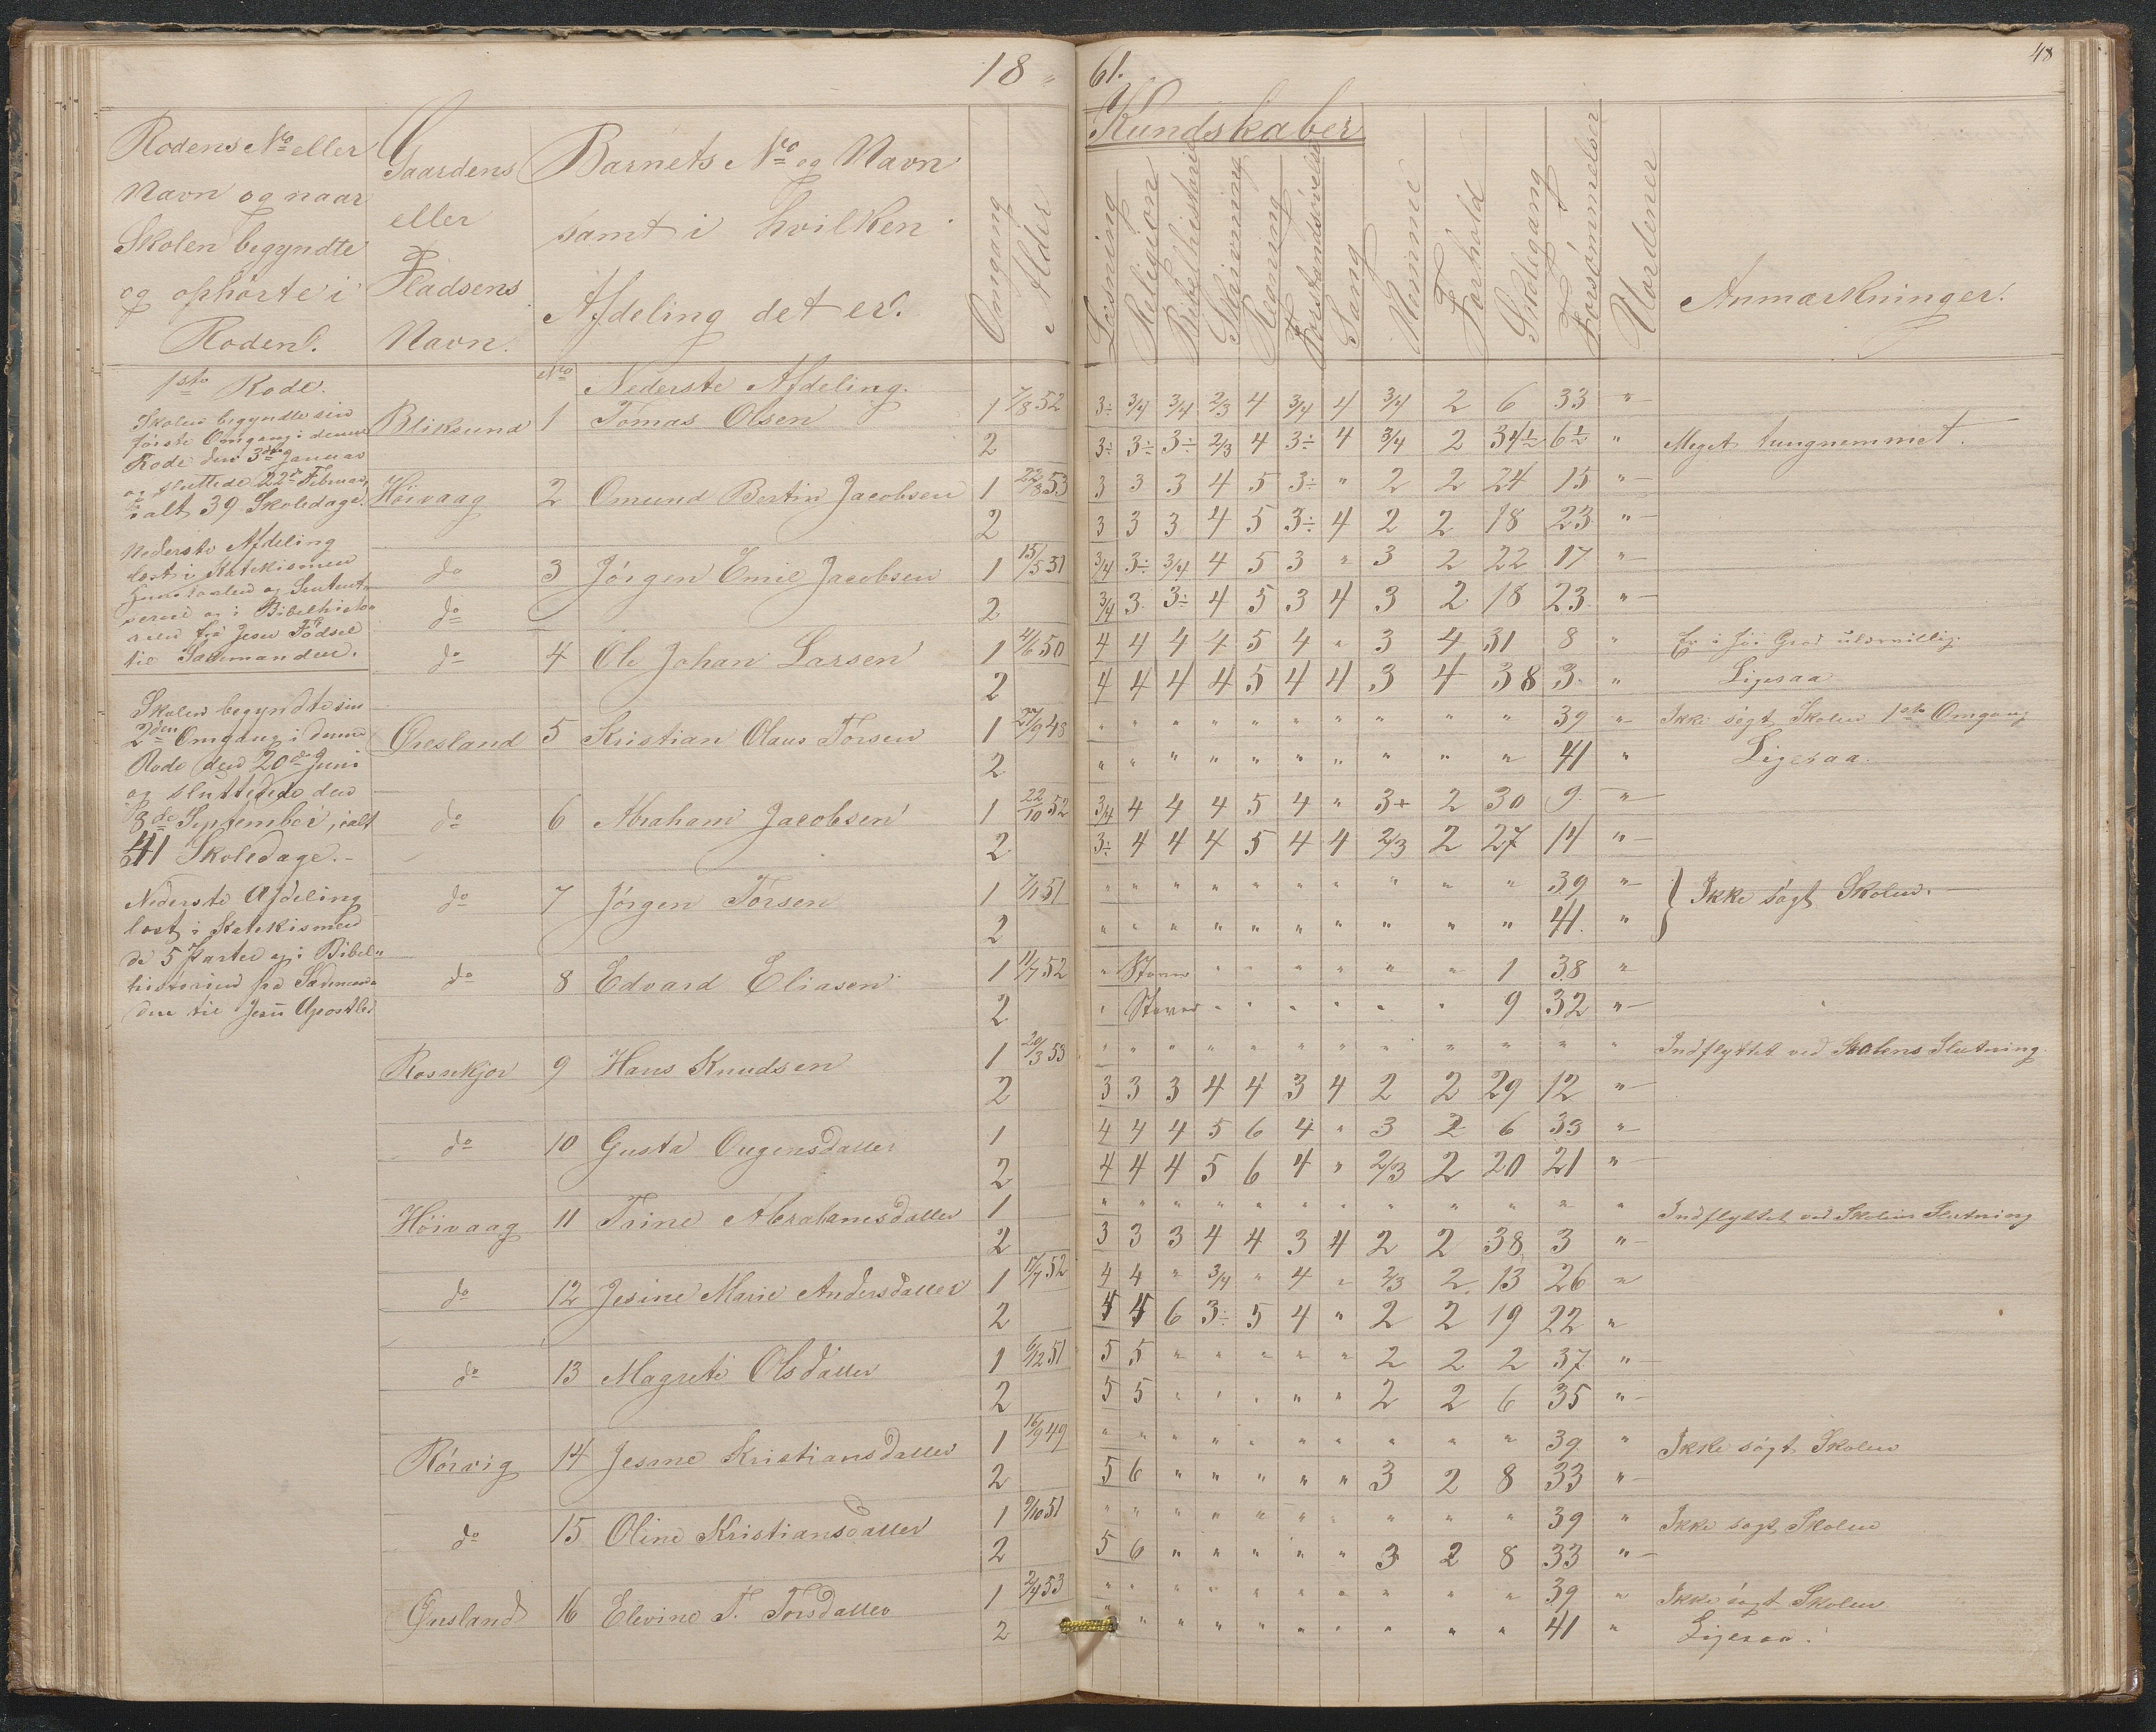 18 " 61.
48
Rodens No eller
Navn og naar
Skolen begyndte
og ophørte i
Roden.
Gaardens
eller
Pladsens
Navn.
Barnets No og Navn
samt i hvilken
Afdeling det er.
Omgang
Alder
Kundskaber
Læsning
Religion
Bibelhistorie
Skrivning
Regning
Forstandsøvelse
Sang
Nemme
Forhold
Skolegang
Forsømmelser
Uordener
Anmærkninger.
1ste Rode.
Skolen begyndte sin
første Omgang i denne
Rode den 3die Januar
og sluttede 22de Februar,
ialt 39 Skoledage.
Nederste Afdeling
læst i Katekismen
og i Bibelhisto-
rien fra Jesu Fødsel
til Sædemanden.
Skolen begyndte sin
2den Omgang i denne
Rode den 20de Juni
og sluttede den
8de September, ialt
41 Skoledage.
Nederste Afdeling
læst i Katekismen
de 5 Parter og i Bibel-
historien fra Sædeman-
den til Jesu Apostler
No Nederste Afdeling.
Bliksund 1 Tomas Olsen 1 7/8 52 3÷ 3/4 3/4 2/3 4 3/4 4 3/4 2 6 33 "
2 3÷ 3÷ 3÷ 2/3 4 3÷ 4 3/4 2 34½ 6½ " Meget tungnemmet.
Höivaag 2 Omund Bertin Jacobsen 1 22/8 53 3 3 3 4 5 3÷ " 2 2 24 15 "
2 3 3 3 4 5 3÷ 4 2 2 18 23 "
do 3 Jörgen Emil Jacobsen 1 15/5 51 3/4 3÷ 3/4 4 5 3 " 3 2 22 17 "
do 2 3/4 3 3÷ 4 5 3 4 3 2 18 23 "
do 4 Ole Johan Larsen 1 4/6 50 4 4 4 4 5 4 " 3 4 31 8 " Er i høi Grad ulærvillig.
2 4 4 4 4 5 4 4 3 4 38 3 " Ligesaa
Øresland 5 Kristian Olaus Torsen 1 27/9 48 " " " " " " " " " " 39 " Ikke søgt Skolen 1ste Omgang
2 " " " " " " " " " " 41 " Ligesaa.
do 6 Abraham Jacobsen 1 22/10 52 3/4 4 4 4 5 4 " 3+ 2 30 9 "
2 3÷ 4 4 4 5 4 4 2/3 2 27 14 "
do 7 Jörgen Torsen 1 7/1 51 " " " " " " " " " " 39 " } Ikke søgt Skolen.
2 " " " " " " " " " " 41 "
do 8 Edvard Eliasen 1 11/7 52 " Staver " " " " " " " 1 38 "
2 " Staver " " " " " " " 9 32 "
9 Hans Knudsen 1 20/3 53 " " " " " " " " " " " " Indflyttet ved Skolens Slutning
2 3 3 3 4 4 3 4 2 2 29 12 "
do 10 Gusta 1 4 4 4 5 6 4 " 3 2 6 33 "
2 4 4 4 5 6 4 " 2/3 2 20 21 "
Höivaag 11 Trine Abrahamsdatter 1 " " " " " " " " " " " " Indflyttet ved Skolens Slutning
2 3 3 3 4 4 3 4 2 2 38 3 "
do 12 Jesine Marie Andersdatter 1 17/7 52 4 4 " 3/4 " 4 " 2/3 2 13 26 "
2 4 4 6 3÷ 5 4 " 2 2 19 22 "
do 13 Magrete Olsdatter 1 6/12 51 5 5 " " " " " 2 2 2 37 "
2 5 5 " " " " " 2 2 6 35 "
Rörvig 14 Jesine Kristiansdatter 1 16/9 49 " " " " " " " " " " 39 " Ikke søgt Skolen
2 5 6 " " " " " 3 2 8 33 "
do 15 Oline Kristiansdatter 1 9/10 51 " " " " " " " " " " 39 " Ikke søgt Skolen
2 5 6 " " " " " 3 2 8 33 "
16 Elevine T. Torsdatter 1 2/4 53 " " " " " " " " " " 39 " Ikke søgt Skolen
2 " " " " " " " " " " 41 " Ligesaa.